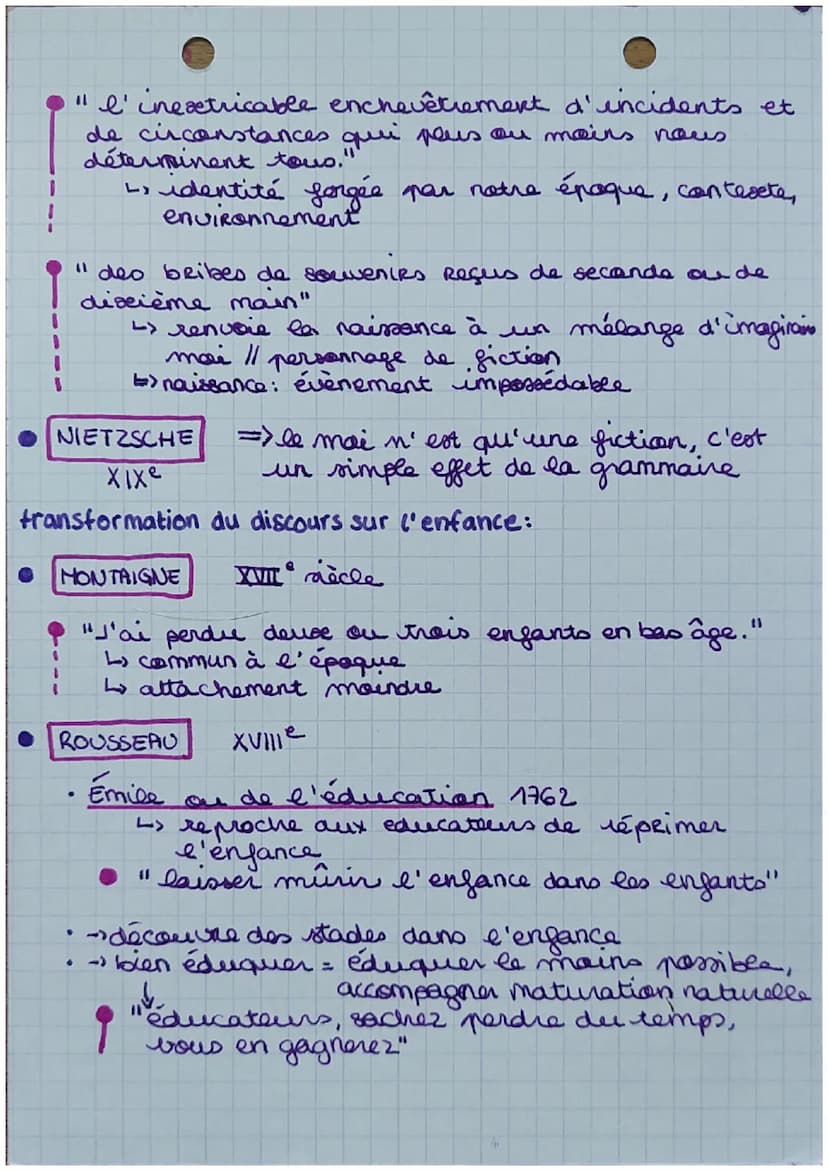 "l'inextricable enchevêtrement d'incidents et
de circonstances qui plus ou moins nous
déterminent tous."
↳ identité forgée par notre époque, contexte,
environnement
"des bribes de souvenirs reçus de seconde ou de
dixième main"
↳ renvoie la naissance à un mélange d'imaginaire
moi // personnage de fiction
↳ naissance : évènement impossédable
NIETZSCHE => le moi n'est qu'une fiction, c'est
XIXe un simple effet de la grammaire
transformation du discours sur l'enfance :
MONTAIGNE XVIIe siècle
"J'ai perdu deux ou trois enfants en bas âge."
↳ commun à l'époque
↳ attachement moindre
ROUSSEAU XVIIIe
• Émile ou de l'éducation 1762
↳ reproche aux educateurs de réprimer
l'enfance
"laisser mûrir l'enfance dans les enfants"
• → découvre des stades dans l'enfance
• → bien éduquer = éduquer le moins possible,
accompagner maturation naturelle
↓
"éducateurs, sachez perdre du temps,
vous en gagnerez"